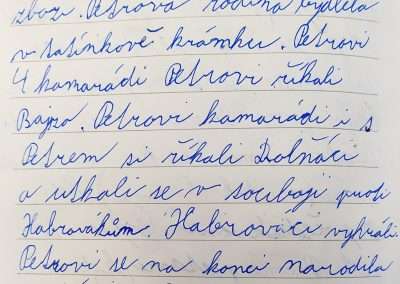 zboží. Petrova rodina bydlela
v tatínkově krámku. Petrovi
4 kamarádi Petrovi říkali
Bajzo. Petrovi kamarádi i s
Petrem si říkali Dolňáci
a utkali se v souboji proti
Habrovakům. Habrováčí vyhráli.
Petrovi se na konci narodila